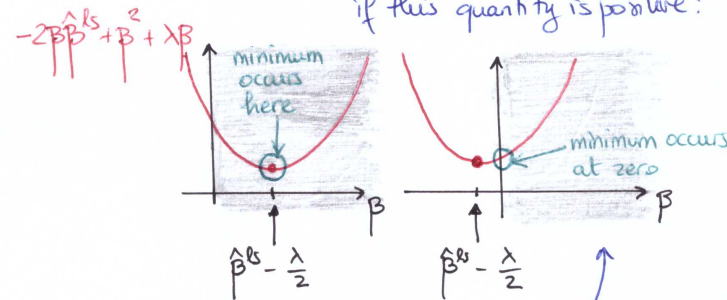 if this quantity is positive:
-2ββ̂^ls + β² + λβ
minimum
occurs
here
minimum occurs
at zero
β
β
β̂^ls - λ/2
β̂^ls - λ/2